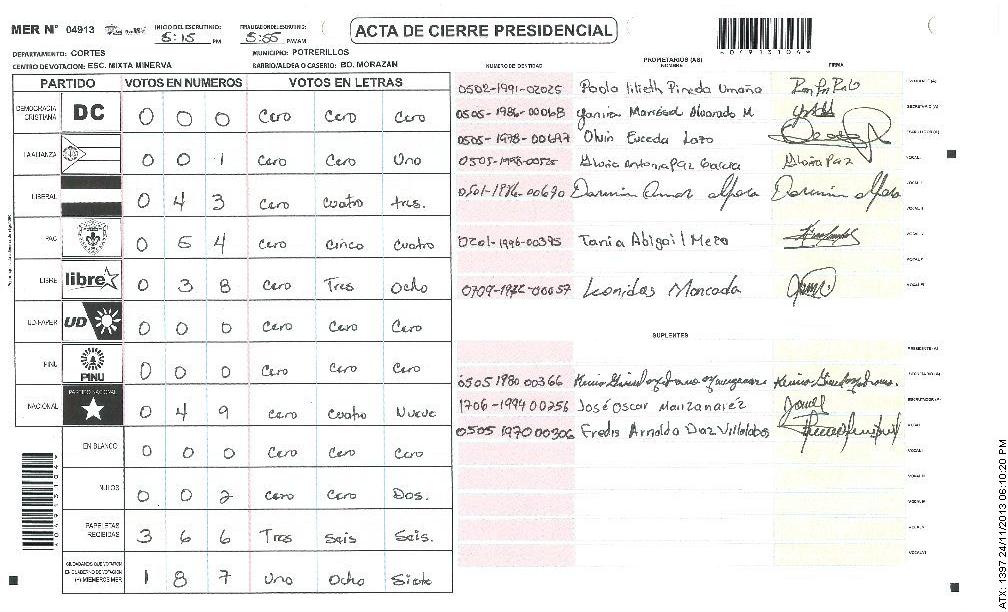 MER Nº 04913 INICIO DEL ESCRUTINIO: 5:15 PM FINALIZACION DEL ESCRUTINIO: 5:55 PM/AM
ACTA DE CIERRE PRESIDENCIAL
*04913104*
DEPARTAMENTO: CORTES MUNICIPIO: POTRERILLOS
CENTRO DE VOTACION: ESC. MIXTA MINERVA BARRIO/ALDEA O CASERIO: BO. MORAZAN
PARTIDO VOTOS EN NUMEROS VOTOS EN LETRAS
DEMOCRACIA CRISTIANA DC 0 0 0 Cero Cero Cero
LA ALIANZA 0 0 1 Cero Cero Uno
LIBERAL 0 4 3 Cero Cuatro tres.
PAC 0 5 4 Cero Cinco Cuatro
LIBRE libre 0 3 8 Cero Tres Ocho
UD-FAPER UD 0 0 0 Cero Cero Cero
PINU PINU 0 0 0 Cero Cero Cero
NACIONAL PARTIDO NACIONAL 0 4 9 Cero Cuatro Nueve
EN BLANCO 0 0 0 Cero Cero Cero
NULOS 0 0 2 Cero Cero Dos.
PAPELETAS RECIBIDAS 3 6 6 Tres Seis Seis.
CIUDADANOS QUE VOTARON EN CUADERNO DE VOTACION (+) MIEMBROS MER 1 8 7 Uno Ocho Siete
PROPIETARIOS (AS)
NUMERO DE IDENTIDAD NOMBRE FIRMA
0502-1991-02025 Paola lilieth Pineda Umaña
0505-1986-00068 Yamia Marisol Alvarado M
0505-1978-00697 Olvin Euceda Lazo
0505-1998-00525 Gloria Antonia Paz Garcia Gloria Paz
0501-1986-00690 Darwin Omar
0201-1996-00395 Tania Abigail Meza
0709-1982-00057 Leonidas Moncada
SUPLENTES
0505 1980 00366
1706-1994 00256 José Oscar Manzanarez
0505 1970 00306 Fredis Arnoldo Diaz Villalobos
ATX: 1397 24/11/2013 06:10:20 PM